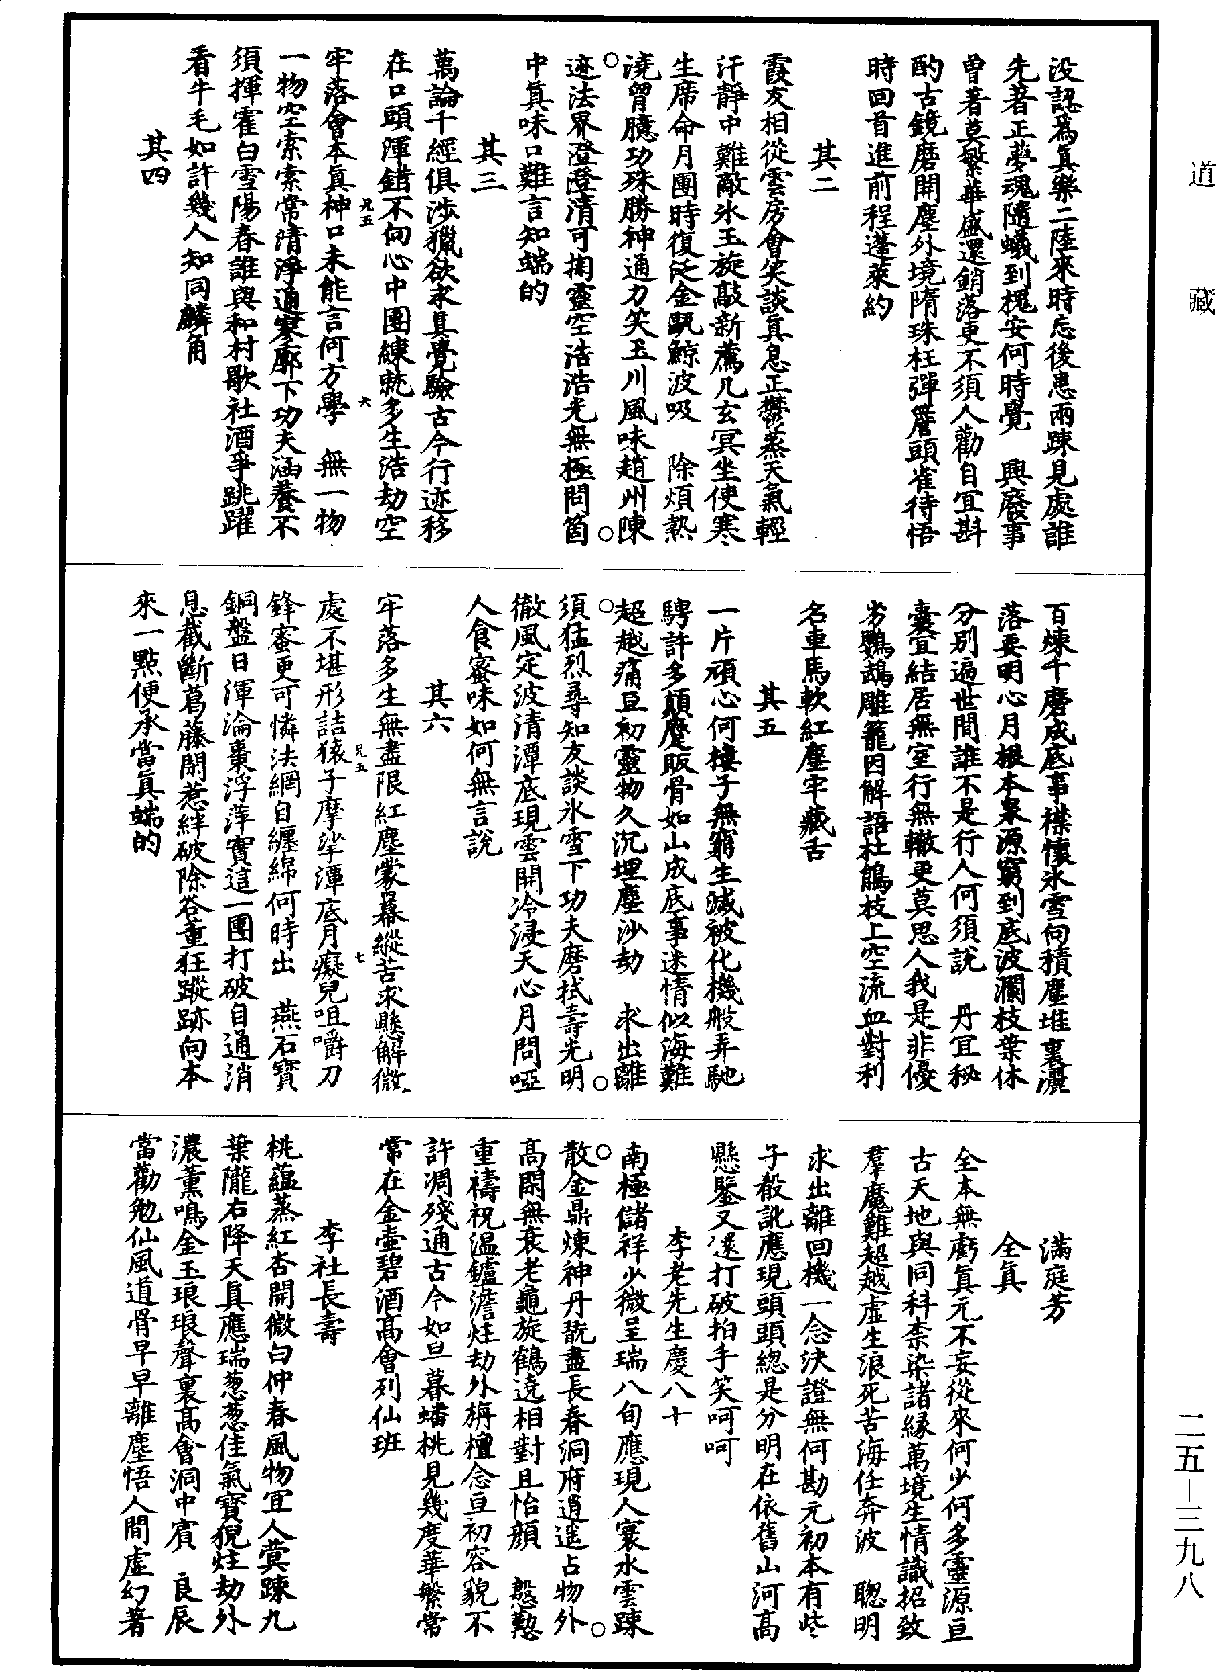 道藏
没認爲真樂二陸來時忘後患兩踈見處誰
先著正夢魂隨蟻到槐安何時覺　興廢事
曾著莫繁華盛還銷落更不須人勸自宜斟
酌古鏡磨開塵外境隋珠枉彈簷頭雀待悟
時回首進前程蓬萊約
其二
霞友相從雲房會笑談真息正鬱蒸天氣輕
汗靜中難敵氷玉旋敲新薦几玄冥坐使寒
生席命月團時復泛金甌鯨波吸　除煩熱
澆胷臆功殊勝神通力笑玉川風味趙州陳
迹法界澄澄清可掬靈空浩浩光無極問箇
中真味口難言知端的
其三
萬論千經俱涉獵欲求真覺驗古今行迹移
在口頭渾錯不向心中團練就多生浩劫空
牢落會本真神口未能言何方學　無一物
一物空索索常清淨通寥廓下功夫涵養不
須揮霍白雪陽春誰與和村歌社酒爭跳躍
看牛毛如許幾人知同麟角
其四
百煉千磨成底事襟懷氷雪向積塵堆裏灑
落要明心月根本泉源窮到底波瀾枝葉休
分別遍世間誰不是行人何須說　丹宜秘
囊宜結居無室行無轍更莫思人我是非優
劣鸚鵡雕籠因解語杜鵑枝上空流血對利
名車馬軟紅塵牢藏舌
其五
一片頑心何摟子無窮生滅被化機般弄馳
騁許多顛蹷販骨如山成底事迷情似海難
超越痛亘初靈物久沉埋塵沙劫　求出離
須猛烈尋知友談氷雪下功夫磨拭壽光明
徹風定波清潭底現雲開冷浸天心月問啞
人食蜜味如何無言說
其六
牢落多生無盡限紅塵蒙幕縱苦求懸解微
處不堪形詰猿子摩挲潭底月癡兒咀嚼刀
鋒蜜更可憐法網自纏綿何時出　燕石寶
銅盤日渾淪棗浮萍實這一團打破自通消
息截斷葛藤閑惹絆破除答董狂蹤跡向本
來一點便承當真端的
滿庭芳
全真
全本無虧真元不妄從來何少何多靈源亘
古天地與同科柰染諸緣萬境生情識招致
羣魔難超越虛生浪死苦海任奔波　聰明
求出離回機一念決證無何勘元初本有些
子殽訛應現頭頭總是分明在依舊山河高
懸鑒又還打破拍手笑呵呵
李老先生慶八十
南極儲祥少微呈瑞八旬應現人寰水雲踈
散金鼎煉神丹翫盡長春洞府逍遥占物外
高閑無衰老龜旋鶴遶相對且怡顏　慇懃
重禱祝温鑪澹炷劫外栴檀念亘初容貌不
許凋殘通古今如旦暮蟠桃見幾度華繁常
常在金壷碧酒高會列仙班
李社長壽
桃蘊蒸紅杏開微白仲春風物宜人蓂踈九
葉隴右降天真應瑞葱葱佳氣寶猊炷劫外
濃薰鳴金玉琅琅聲裏高會洞中賓　良辰
當勸勉仙風道骨早早離塵悟人間虛幻著
二五－三九八